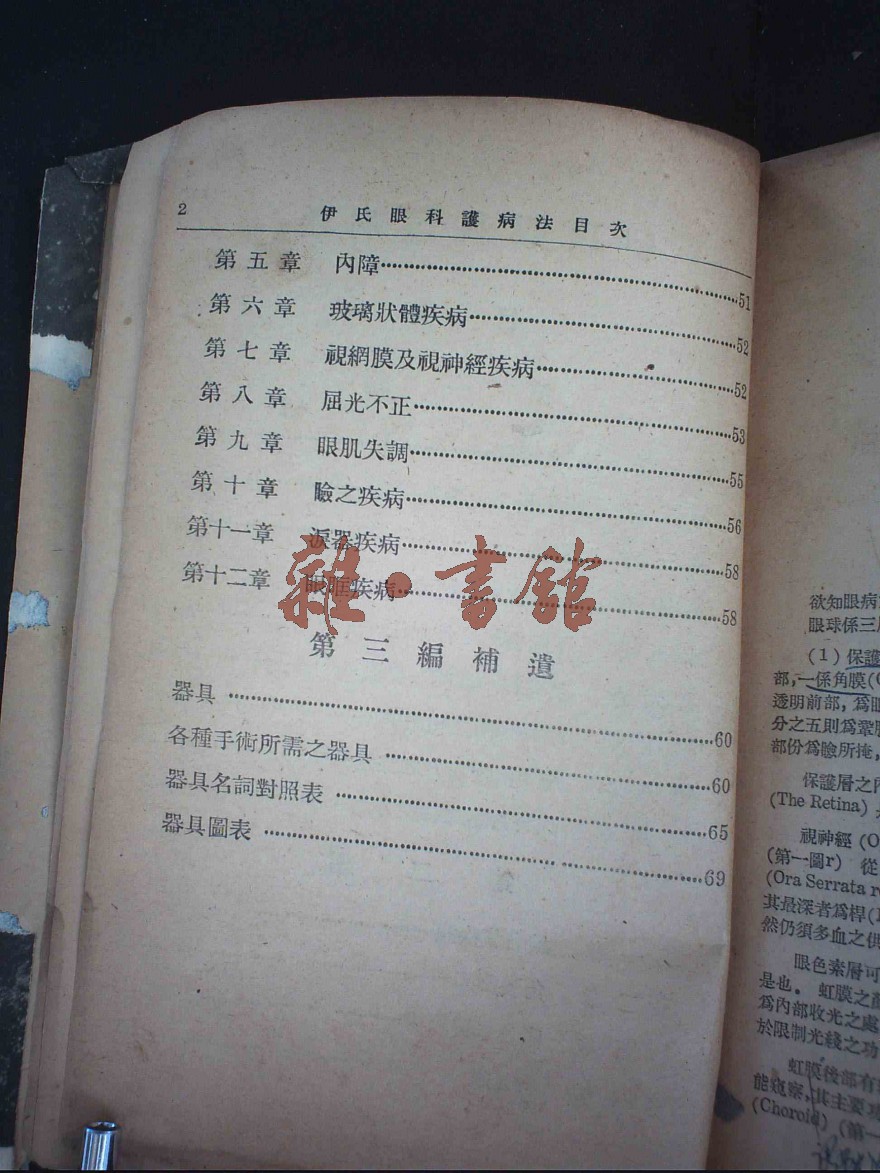 2
伊氏眼科護病法目次
第五章 內障 51
第六章 玻璃狀體疾病 52
第七章 視網膜及視神經疾病 52
第八章 屈光不正 53
第九章 眼肌失調 55
第十章 瞼之疾病 56
第十一章 淚器疾病 58
第十二章 眼眶疾病 58
雜·書館
第三編補遺
器具 60
各種手術所需之器具 60
器具名詞對照表 65
器具圖表 69
欲知眼病
眼球係三
(1)保護
部,一係角膜(
透明前部,爲
分之五則爲鞏
部份爲瞼所掩,
保護層之
(The Retina)
視神經(O
(第一圖r) 從
(Ora Serrata
其最深者爲桿(
然仍須多血之供
眼色素層可
是也。虹膜之
爲內部收光之處
於限制光綫之功
虹膜後部有
能窺察,其主要功
(Choroid)(第一